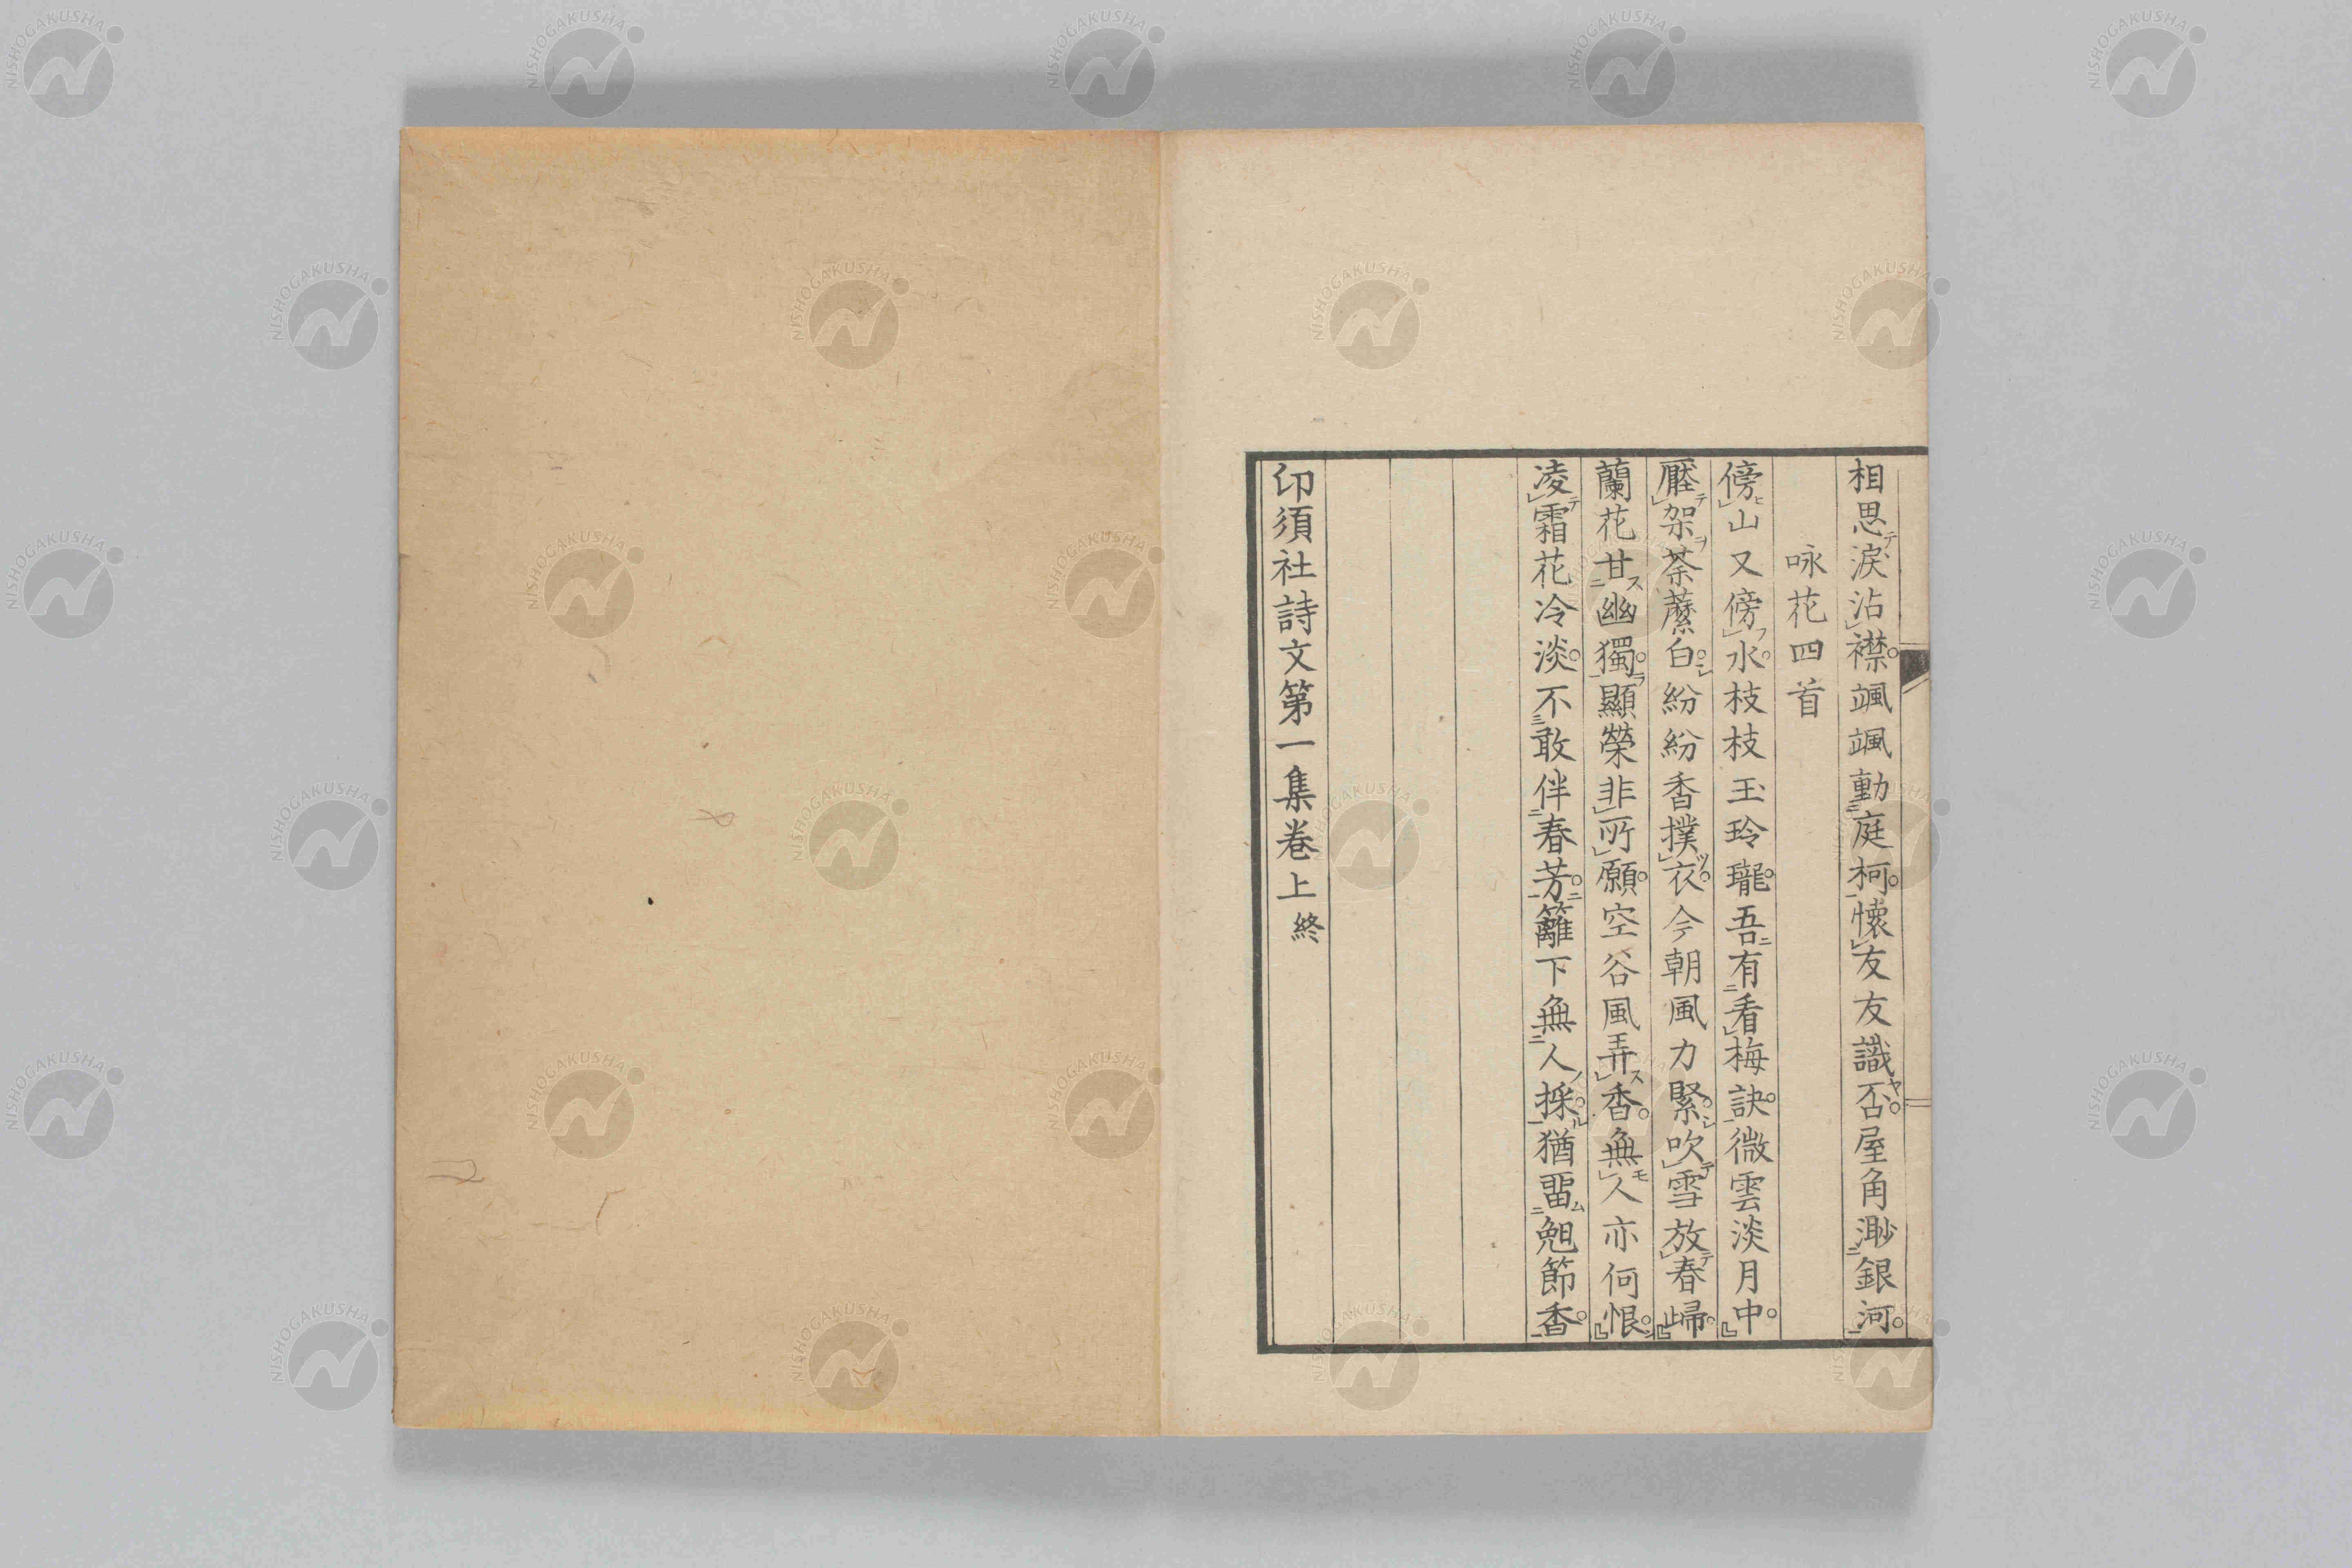 相思淚沾襟颯颯動庭柯懷友友識否屋角渺銀河
咏花四首
傍山又傍水枝枝玉玲瓏吾有看梅訣微雲淡月中
壓架荼蘼白紛紛香撲衣今朝風力緊吹雪放春歸
蘭花甘幽獨顯榮非所願空谷風弄香無人亦何恨
凌霜花冷淡不敢伴春芳籬下無人採猶畱晚節香
卬須社詩文第一集卷上終
NISHOGAKUSHA